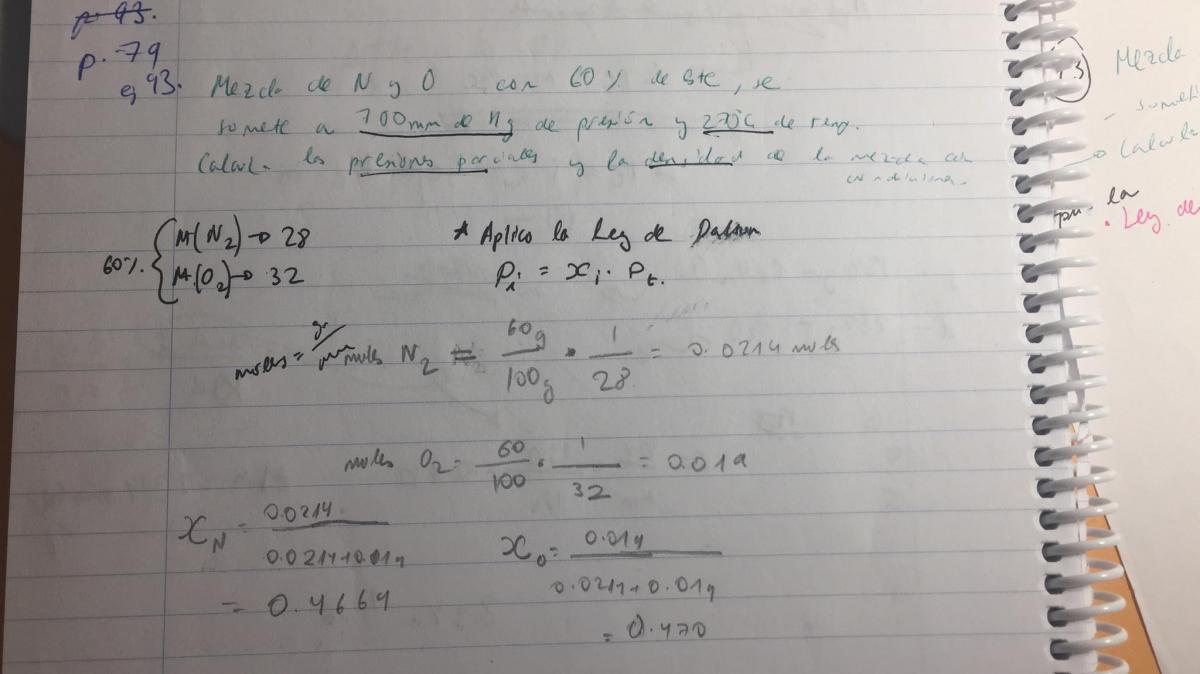 p. 93.
p. 79
ej 93. Mezcla de N y O con 60% de este, se
somete a 700mm de Hg de presión y 27ºC de temp.
Calcul. las presiones parciales y la densidad de la mezcla en
condiciones.
60% { M(N2) → 28
M(O2) → 32
* Aplico la Ley de Dalton
Pi = xi · Pt.
moles = gr/ moles N2 = 60g/100g · 1/28 = 0.0214 moles
moles O2 = 60/100 · 1/32 = 0.019
xN = 0.0214/0.0214+0.019
= 0.4669
xO = 0.019/0.0214+0.019
= 0.470
Mezcla
- somet
→ Calcula
la
• Ley de